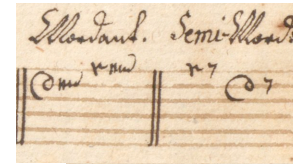 Mordant. Semi-Mord